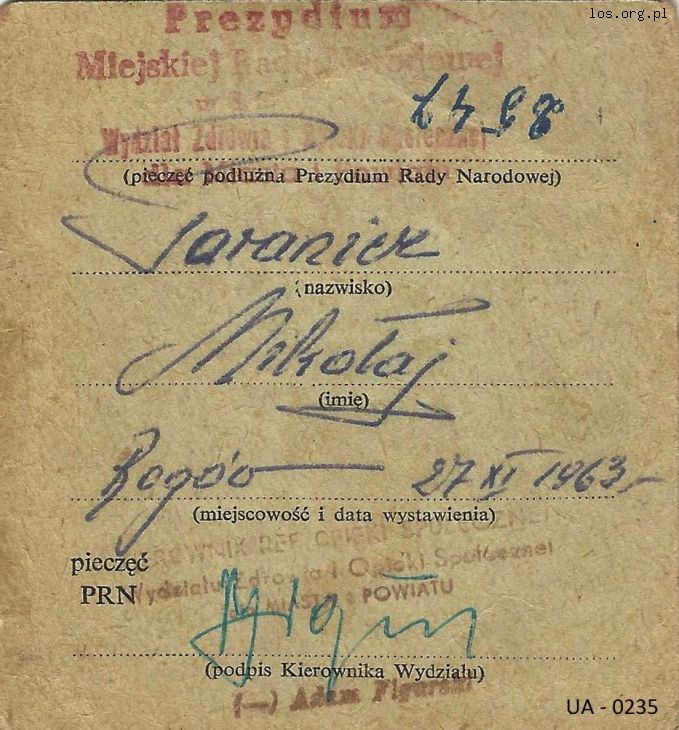 los.org.pl
Prezydium
Miejskiej Rady Narodowej
Wydział Zdrowia i Opieki Społecznej
(pieczęć podłużna Prezydium Rady Narodowej)
(nazwisko)
Mikołaj
(imię)
27 XI 1963
(miejscowość i data wystawienia)
KIEROWNIK REF. OPIEKI SPOŁECZNEJ
pieczęć
Wydziału Zdrowia i Opieki Społecznej
PRN
MIASTA POWIATU
(podpis Kierownika Wydziału)
(—) Adam
UA - 0235